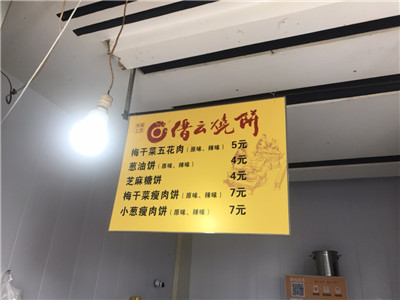 缙云烧饼
梅干菜五花肉(原味、辣味) 5元
葱油饼(原味、辣味) 4元
芝麻糖饼 4元
梅干菜瘦肉饼(原味、辣味) 7元
小葱瘦肉饼(原味、辣味) 7元